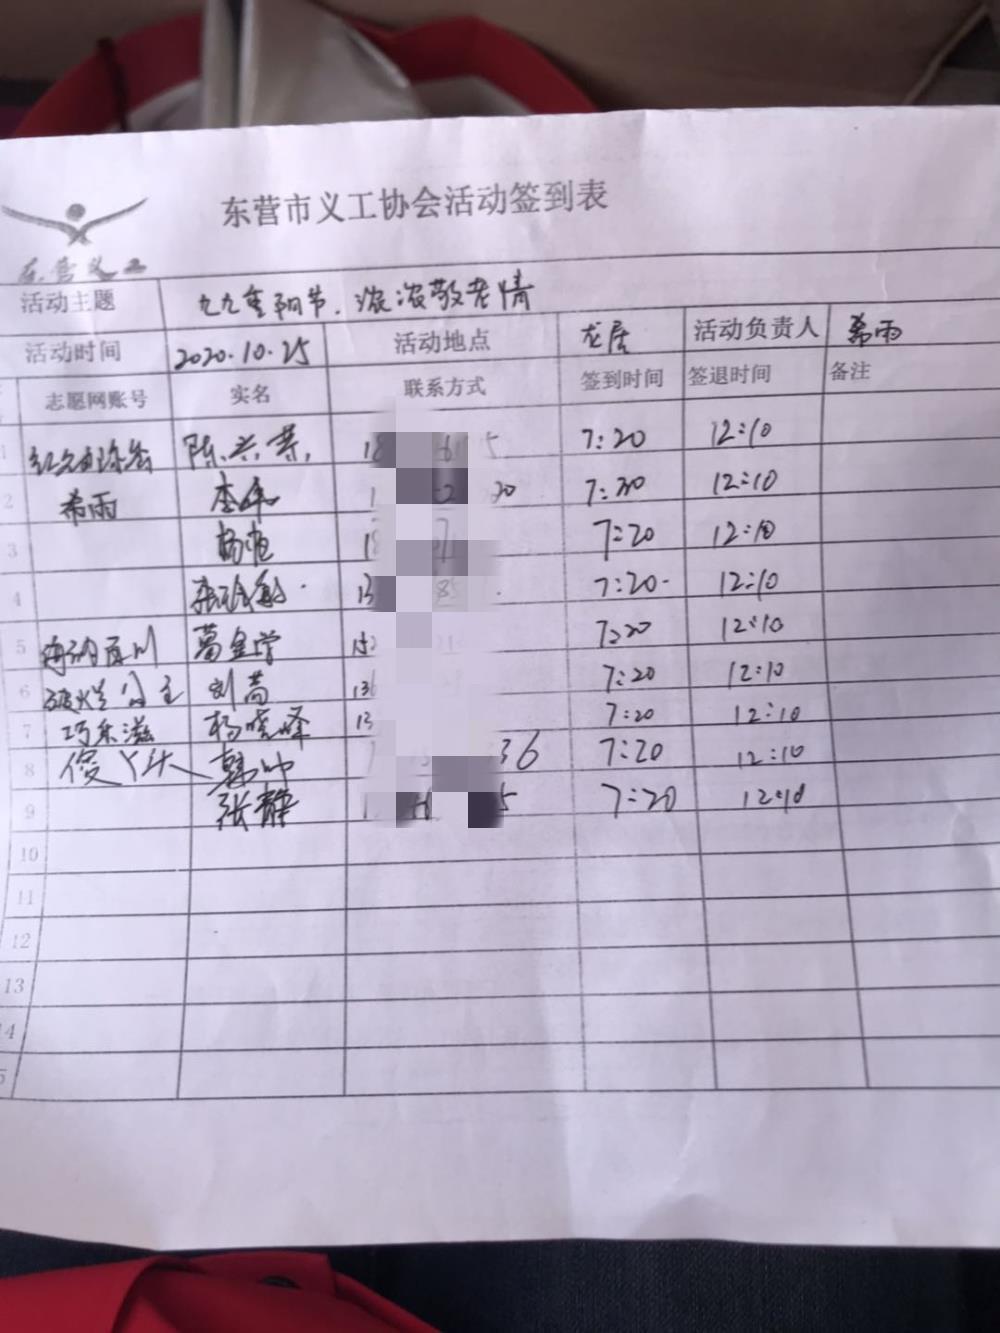 东营市义工协会活动签到表
东营义工
活动主题 九九重阳节.浓浓敬老情
活动时间 2020.10.25 活动地点 龙居 活动负责人 希雨
志愿网账号 实名 联系方式 签到时间 签退时间 备注
1 18 7:20 12:10
2 希雨 7:30 12:10
3 18 7:20 12:10
4 13 7:20 12:10
5 葛金学 152 7:20 12:10
6 公主 刘 136 7:20 12:10
7 巧乐滋 杨晓峰 13 7:20 12:10
8 傻丫头 韩帅 36 7:20 12:10
9 张静 5 7:20 12:10
10
11
12
13
14
5